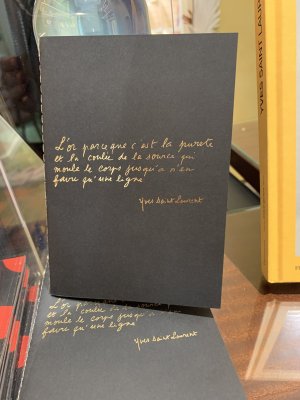 L'or parce que c'est la pureté
et la coulée de la source qui
moule le corps jusqu'à n'en
faire qu'une ligne
Yves Saint Laurent
L'or parce que c'est la pureté
et la coulée de la source qui
moule le corps jusqu'à n'en
faire qu'une ligne
Yves Saint Laurent
YVES SAINT LAUR